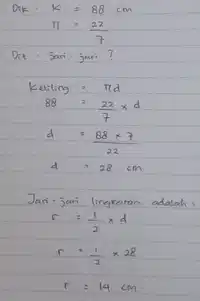 Dik : K = 88 cm
π = 22/7
Dit : Jari-jari ?
Keliling = πd
88 = 22/7 x d
d = 88 x 7 / 22
d = 28 cm
Jari-jari lingkaran adalah :
r = 1/2 x d
r = 1/2 x 28
r = 14 cm